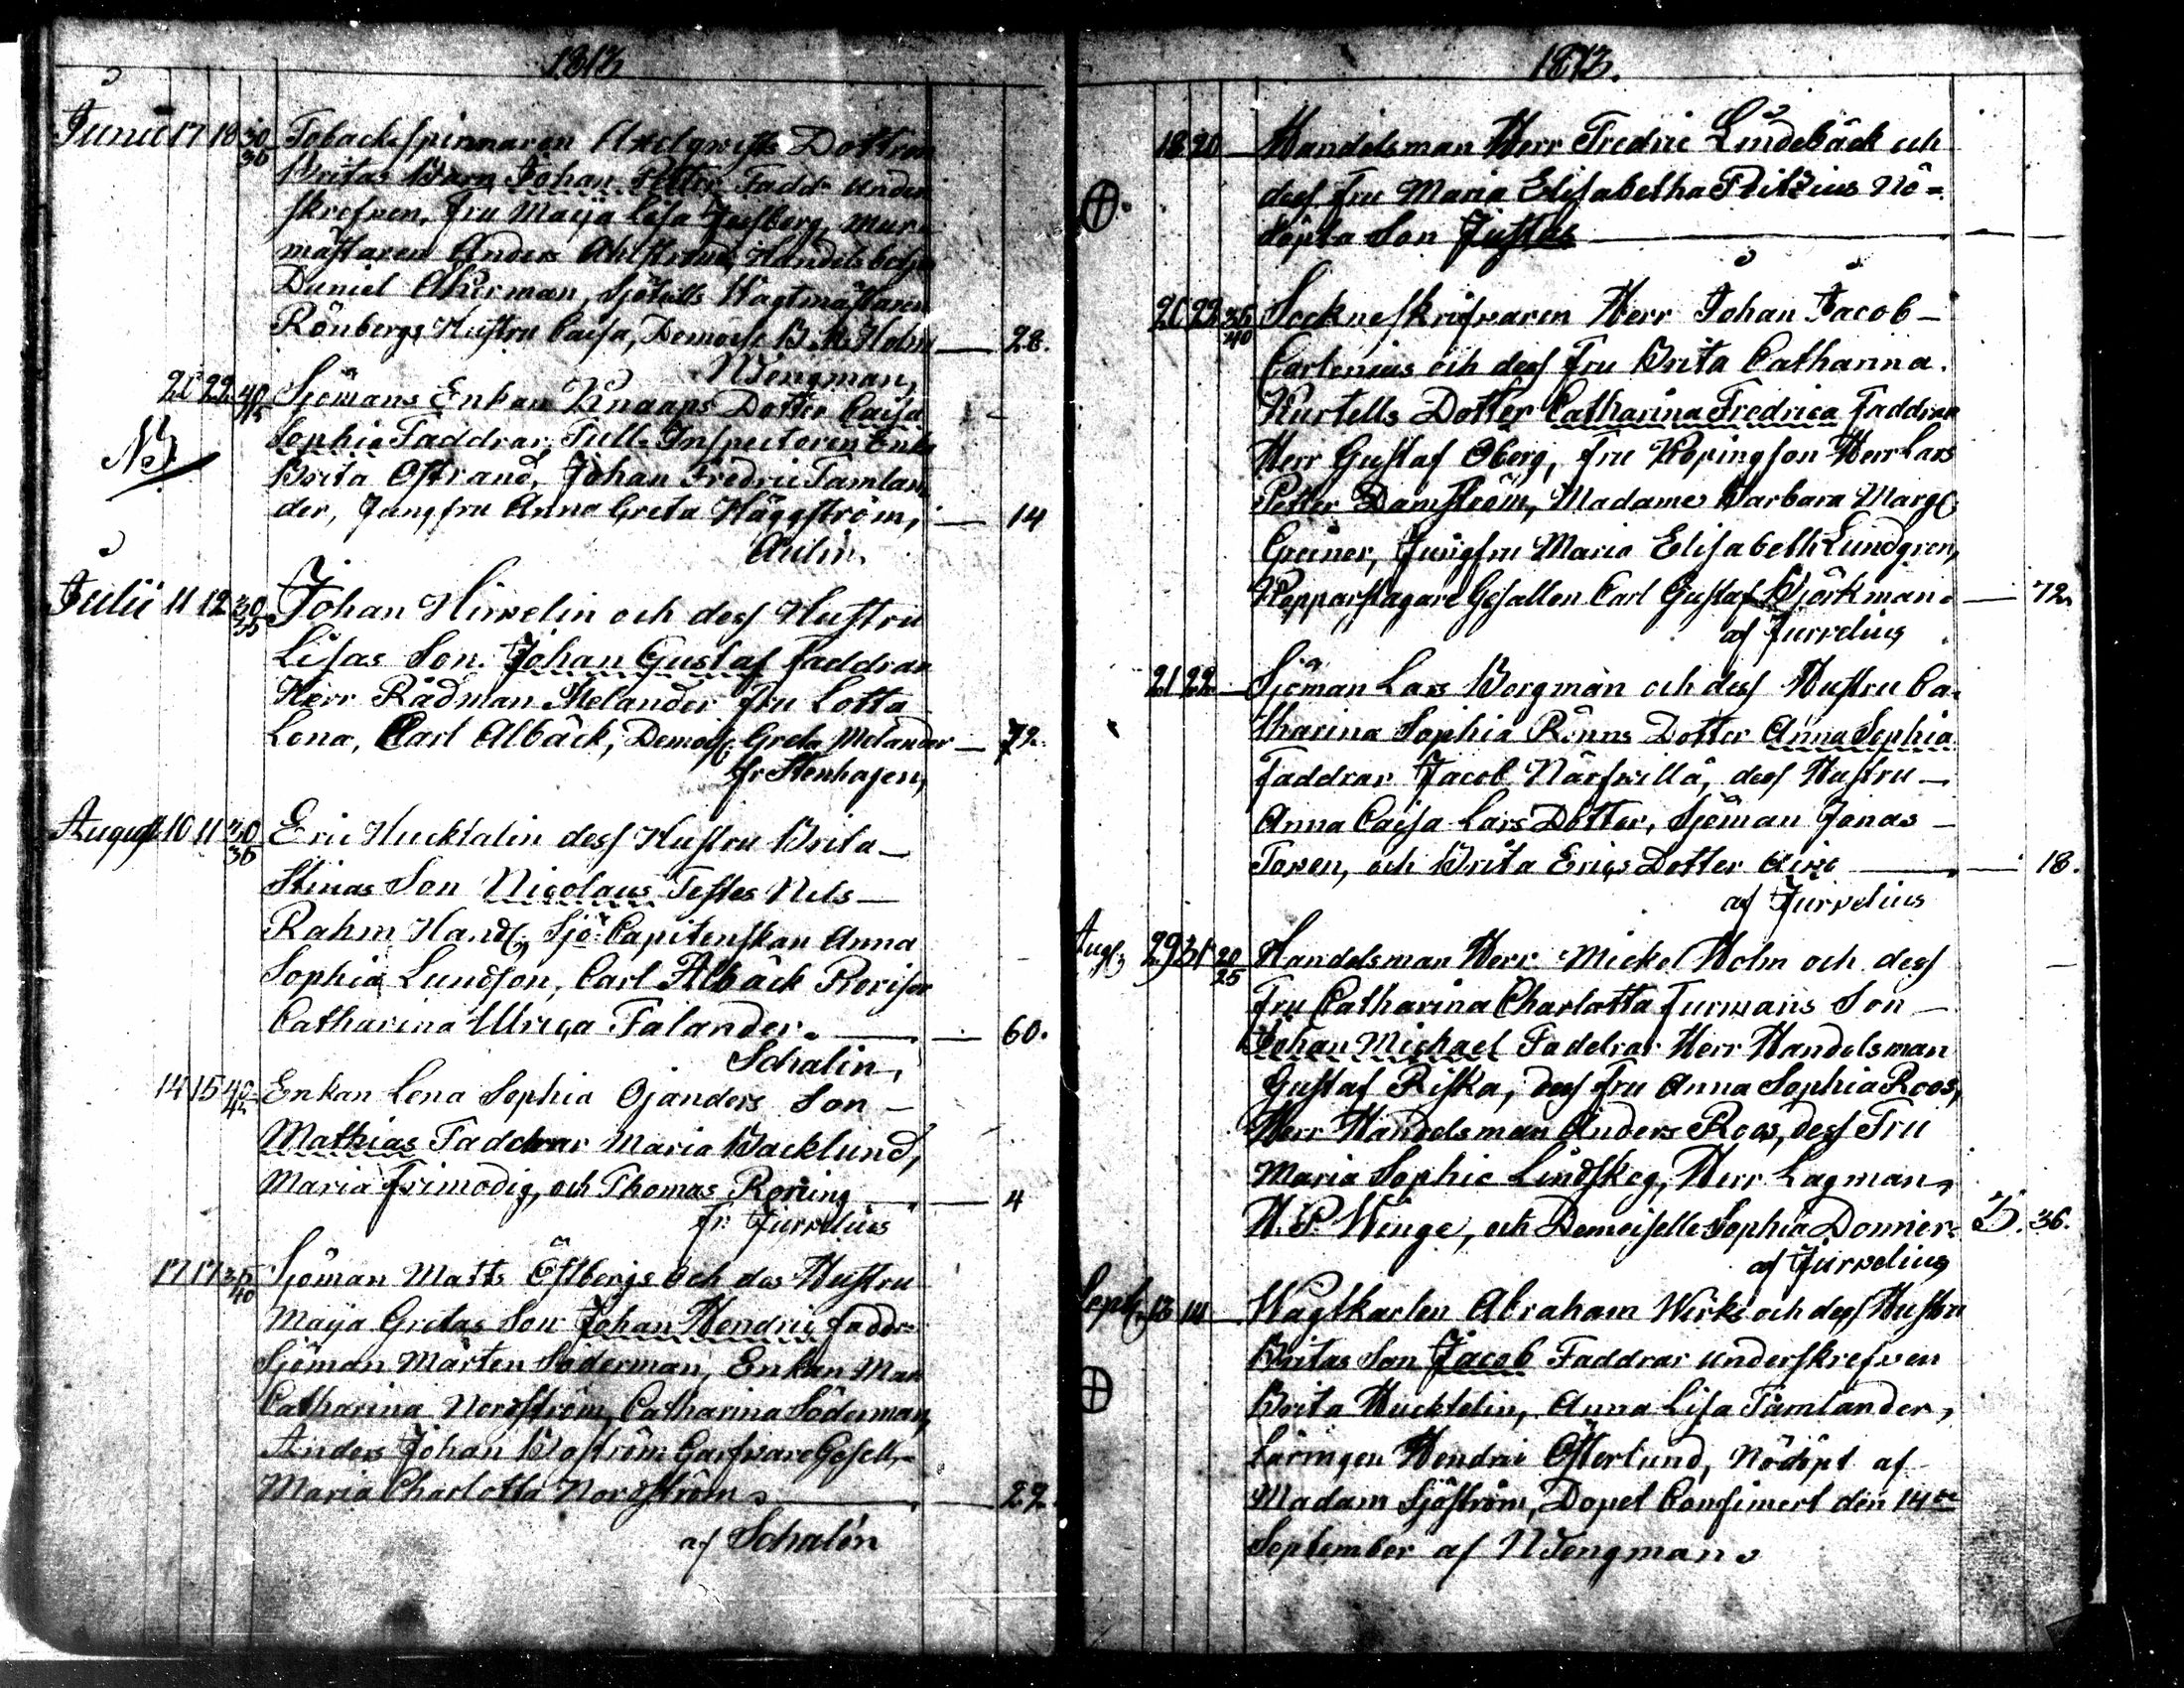 1813
Junii 17 18 30/36 Tobacksspinnaren Axelqwists Dottren
Britas Barn Johan Petter Fadd. under
skrefven, Fru Maija Lisa Jusberg, mur-
mästaren Anders Ahlstrand, Handelsbetj.
Daniel Åkerman, Sjötulls Wagtmästaren
Rönbergs Hustru Caisa, Demoise B. M. Holm — 28.
Wengman,
21 22 40/45 Sjömans Enkan Knaaps Dotter Caisa
NB Sophia Faddrar, Tull-Inspectoren Enka
Brita Ostrand, Johan Fredric Tamlan
der, Jungfru Anna Greta Häggström, — 14
Aulin.
Julii 11 12 30/35 Johan Hirvelin och dess Hustru
Lisas Son. Johan Gustaf Faddrar
Herr Rådman Melander Fru Lotta
Lona, Carl Albäck, Demois. Greta Melander — 72.
fr Stenhagen,
August 10 11 30/36 Eric Hucktalin dess Hustru Brita —
Stinas Son Nicolaus Testes Nils —
Rahm Hand. Sjö-Capitenskan Anna
Sophia Lundson, Carl Albäck Provisor
Catharina Ulrica Falander. — 60.
Schalin,
14 15 40/42 Enkan Lena Sophia Ojanders Son —
Mathias Faddrar Maria Backlund,
Maria Frimodig, och Thomas Roning — 4
fr. Jurvelius
17 17 35/40 Sjöman Matts Östbergs och des Hustru
Maija Gretas Son Johan Hendric Faddr=
Sjöman Mårten Söderman, Enkan Mar
Catharina Nordström, Catharina Söderman,
Anders Johan Boström Garfvare Gesell,
Maria Charlotta Nordström. — 22
af Schalén
1813.
18 20 — Handelsman Herr Fredric Lindebäck och
dess Fru Maria Elisabetha Flitzius Nö=
döpta Son Justus —
20 22 36/40 Sockneskrifvaren Herr Johan Jacob —
Carlenius och dess Fru Brita Catharina
Kurtells Dotter Catharina Fredrica Faddrar
Herr Gustaf Oberg, Fru Kopingson Herr Lars
Petter Damström, Madame Barbara Marg.
Greiner, Jungfru Maria Elisabeth Lundgren,
Kopparslagare Gesällen Carl Gustaf Björkman. — 72
af Jurvelius
21 22 — Sjöman Lars Borgman och dess Hustru Ca-
tharina Sophia Rönns Dotter Anna Sophia
Faddrar Jacob Närfwillä, dess Hustru —
Anna Caisa Lars Dotter, Sjöman Jonas —
Toven, och Brita Erics Dotter Airo — 18.
af Jurvelius
Aug. 29 31 20/25 Handelsman Herr Mickel Holm och dess
Fru Catharina Charlotta Furmans Son —
Johan Michael Faddrar Herr Handelsman
Gustaf Riska, dess Fru Anna Sophia Roos,
Herr Handelsman Anders Roos, dess Fru
Maria Sophia Lindskog, Herr Lagman,
H. P. Winge, och Demoiselle Sophia Donner 3. 36.
af Jurvelius
Sept. 13 14 — Wagtkarlen Abraham Wirke och dess Hustru
Britas Son Jacob Faddrar underskrefven
Brita Hucktelin, Anna Lisa Tamlander,
Läringen Hendric Österlund, Nödöpt af
Madam Sjöström, Dopet Confirmert den 14de
September af Wengman.